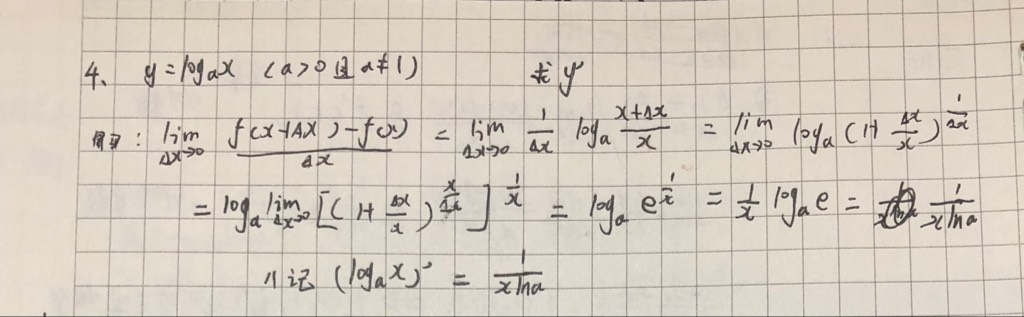 4、 y = logₐx (a>0 且 a≠1) 求 y'
解: lim_{Δx→0} \frac{f(x+Δx)-f(x)}{Δx} = lim_{Δx→0} \frac{1}{Δx} logₐ \frac{x+Δx}{x} = lim_{Δx→0} logₐ (1+\frac{Δx}{x})^{\frac{1}{Δx}}
= logₐ lim_{Δx→0} [(1+\frac{Δx}{x})^{\frac{x}{Δx}}]^{\frac{1}{x}} = logₐ e^{\frac{1}{x}} = \frac{1}{x} logₐ e = \frac{1}{x ln a}
记 (logₐx)' = \frac{1}{x ln a}